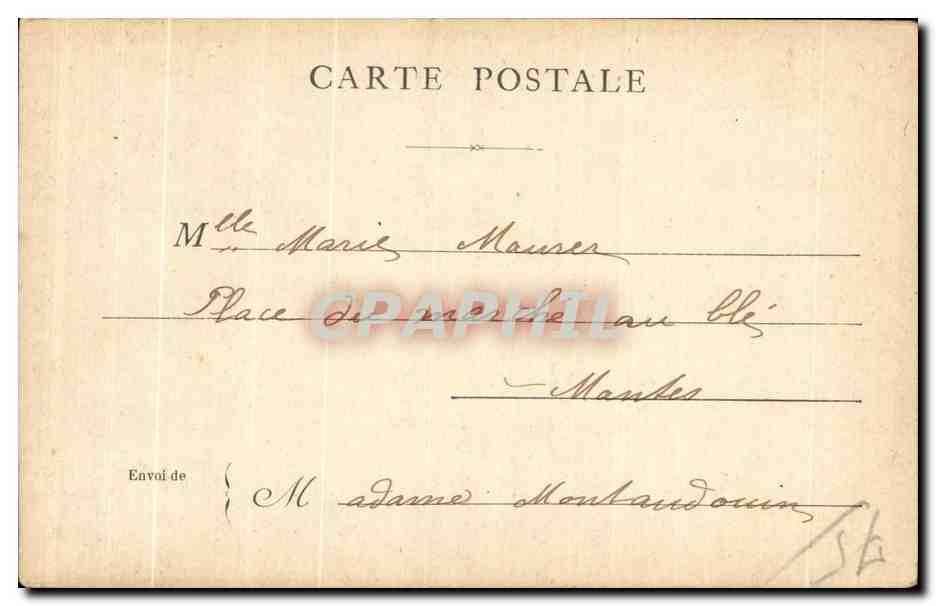 CARTE POSTALE
Mlle Marie Maurer
Place du marché au blé
Mantes
Envoi de
Madame Montaudouin
CPAPHIL